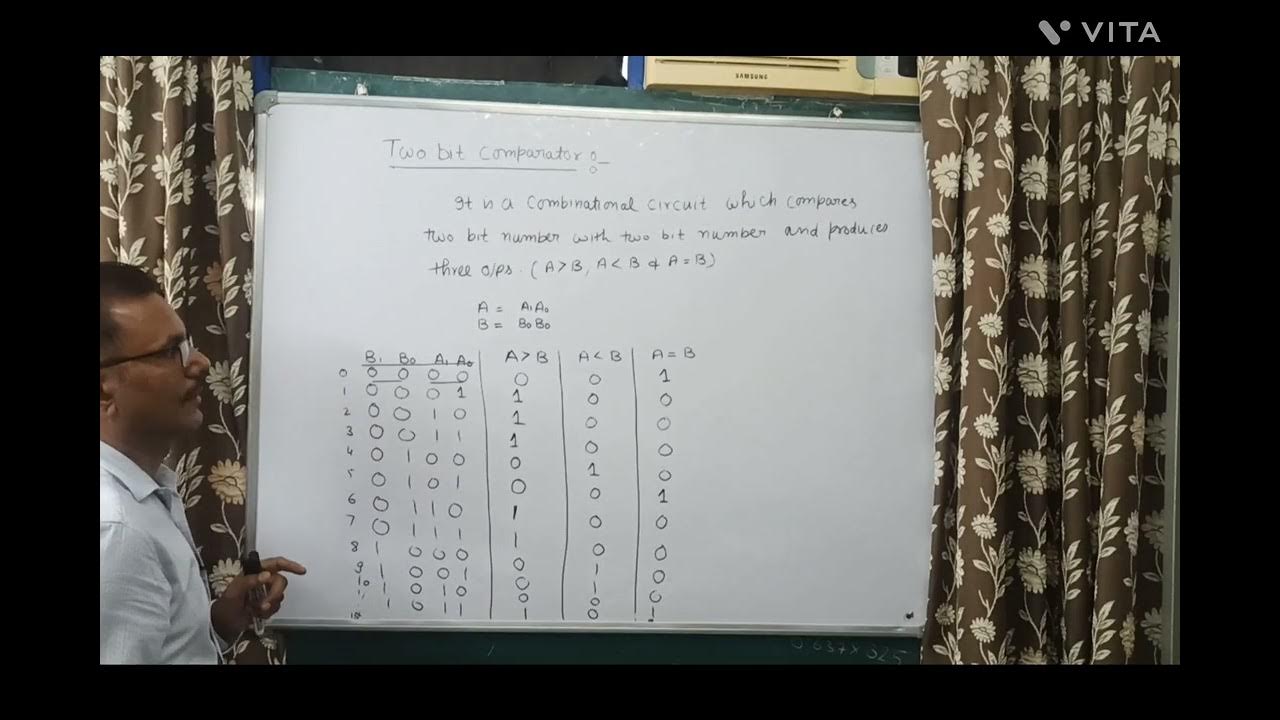 VITA
SAMSUNG
Two bit comparator :-
It is a combinational circuit which compares
two bit number with two bit number and produces
three o/ps. (A>B, A<B & A=B)
A = A₁A₀
B = B₀B₀
B₁ B₀ A₁ A₀ A>B A<B A=B
0 0 0 0 0 0 0 1
1 0 0 0 1 1 0 0
2 0 0 1 0 1 0 0
3 0 0 1 1 1 0 0
4 0 1 0 0 0 1 0
5 0 1 0 1 0 0 1
6 0 1 1 0 1 0 0
7 0 1 1 1 1 0 0
8 1 0 0 0 0 1 0
9 1 0 0 1 0 1 0
10 1 0 1 0 0 0
1 0 1 1 1 0